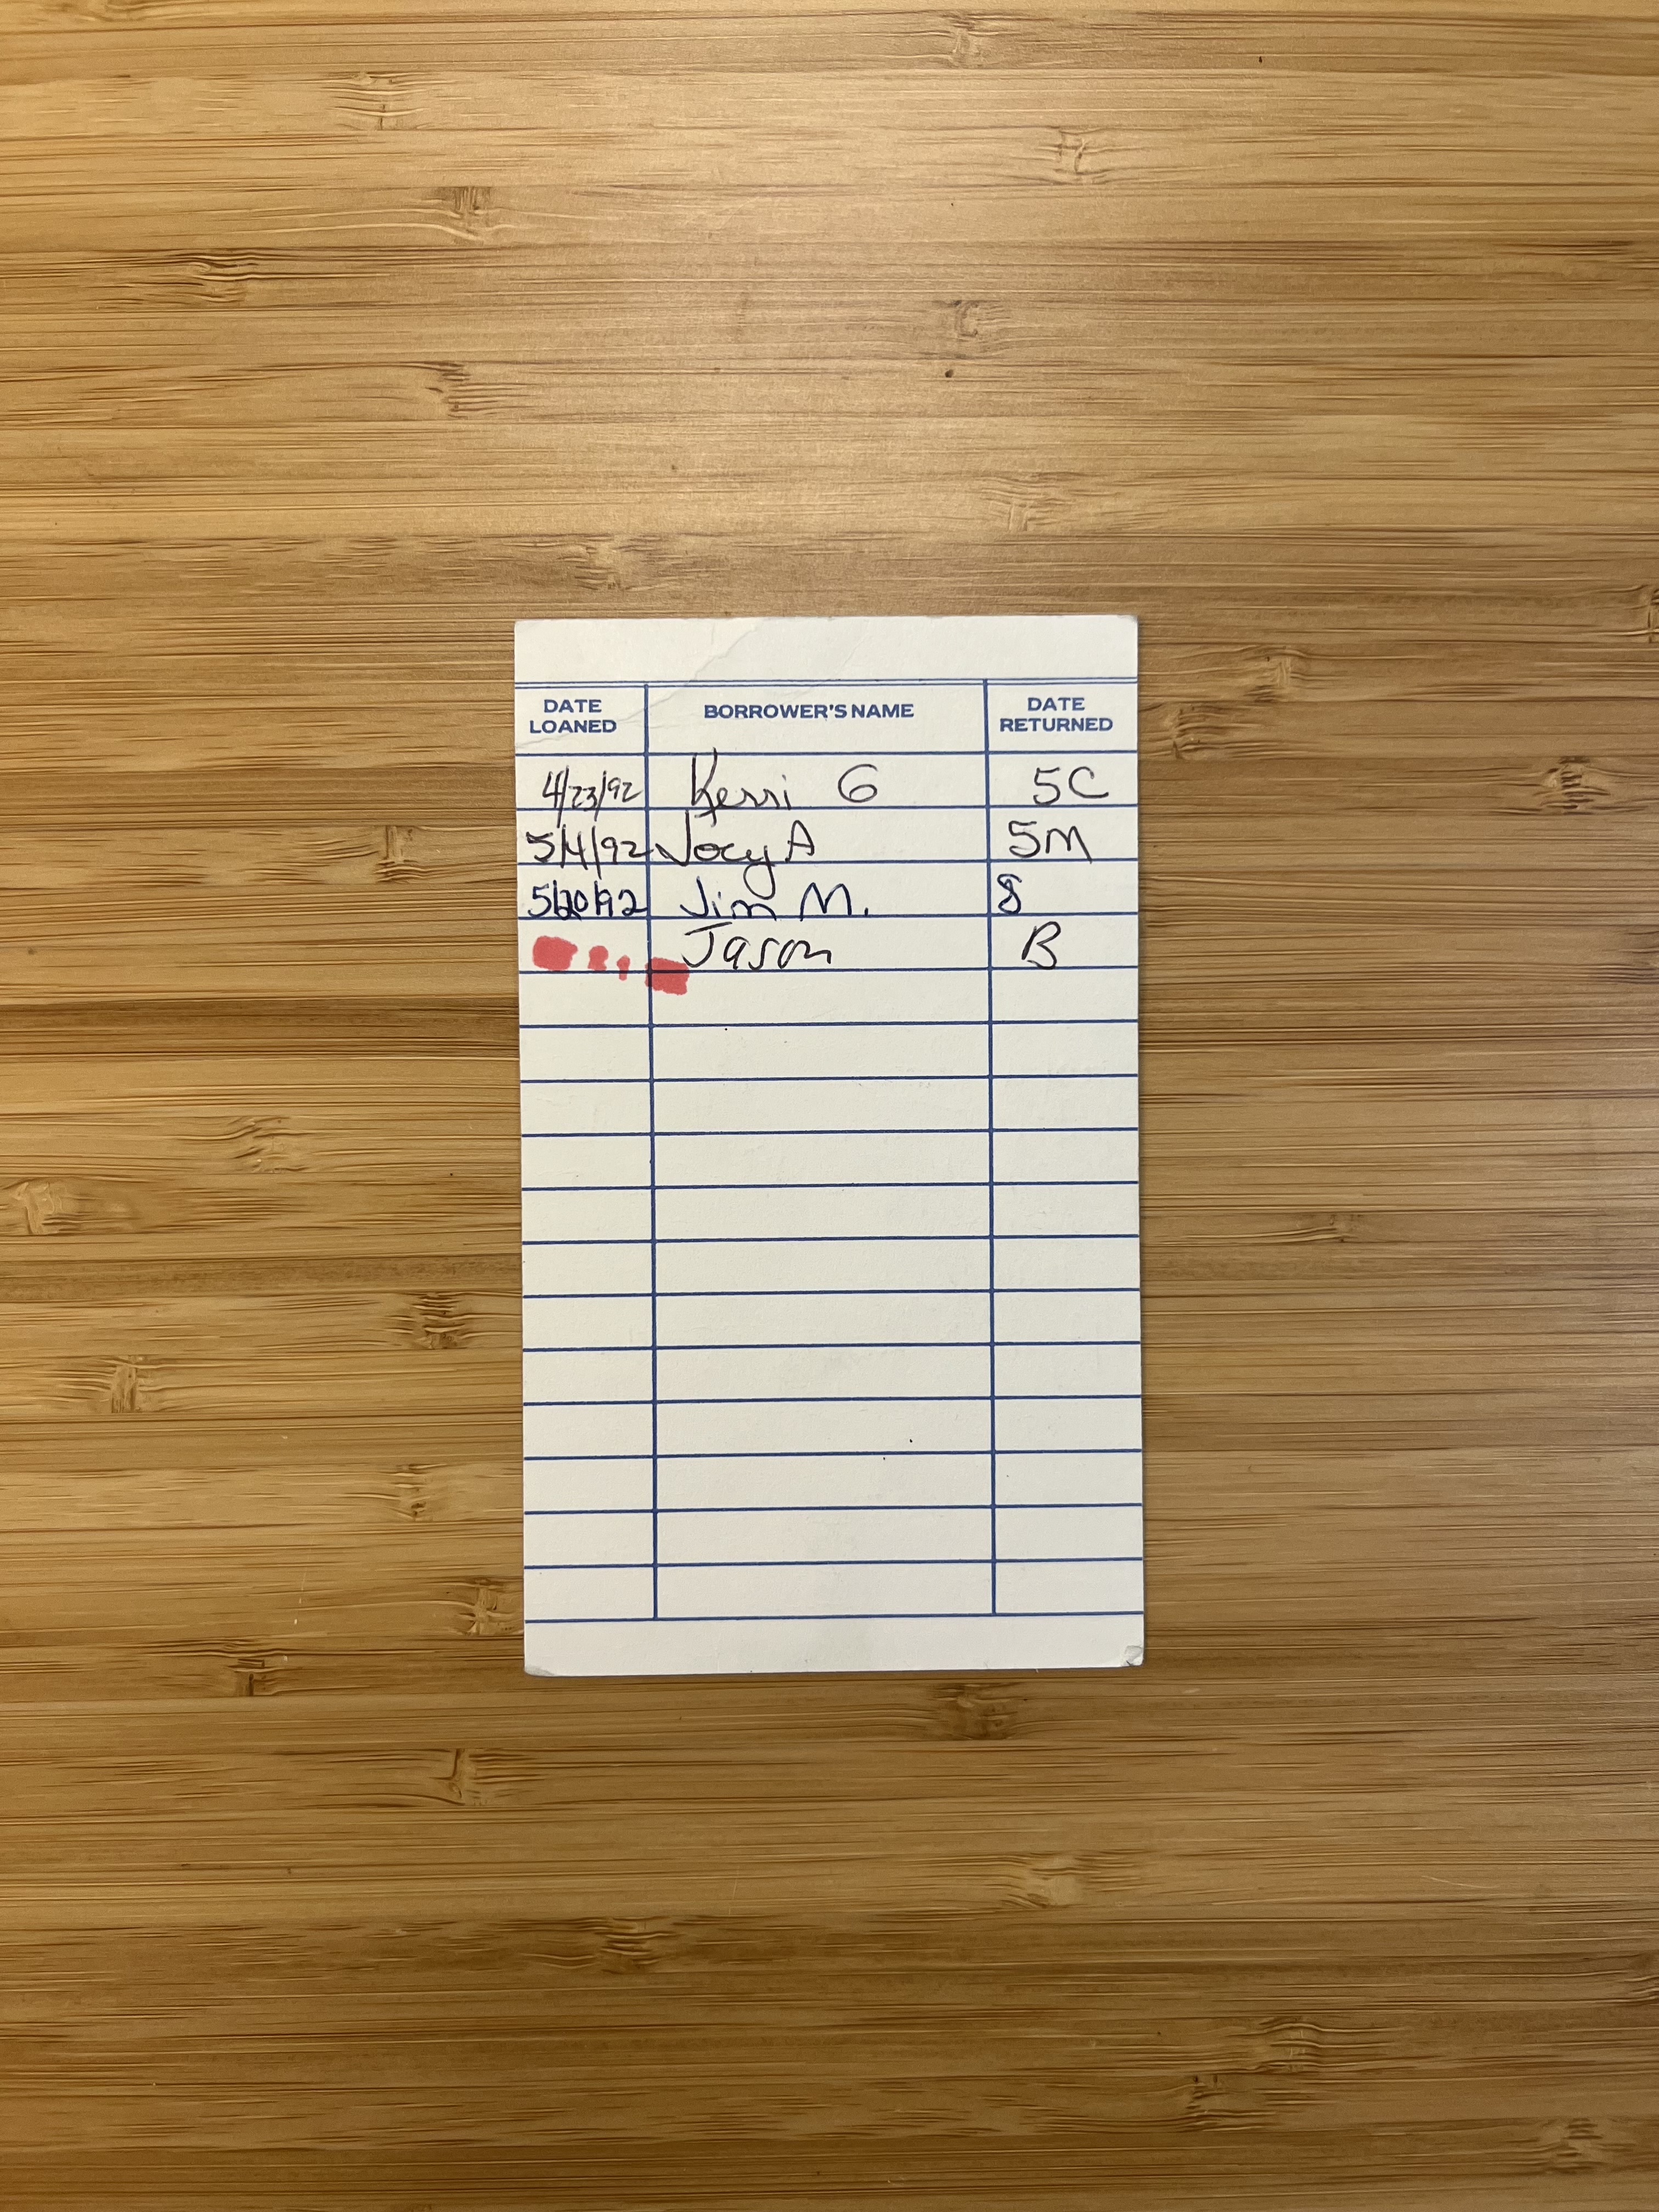 DATE LOANED BORROWER'S NAME DATE RETURNED
4/23/92 Kerri G 5C
5/4/92 Joey A 5M
5/20/92 Jim M. 8
Jason B